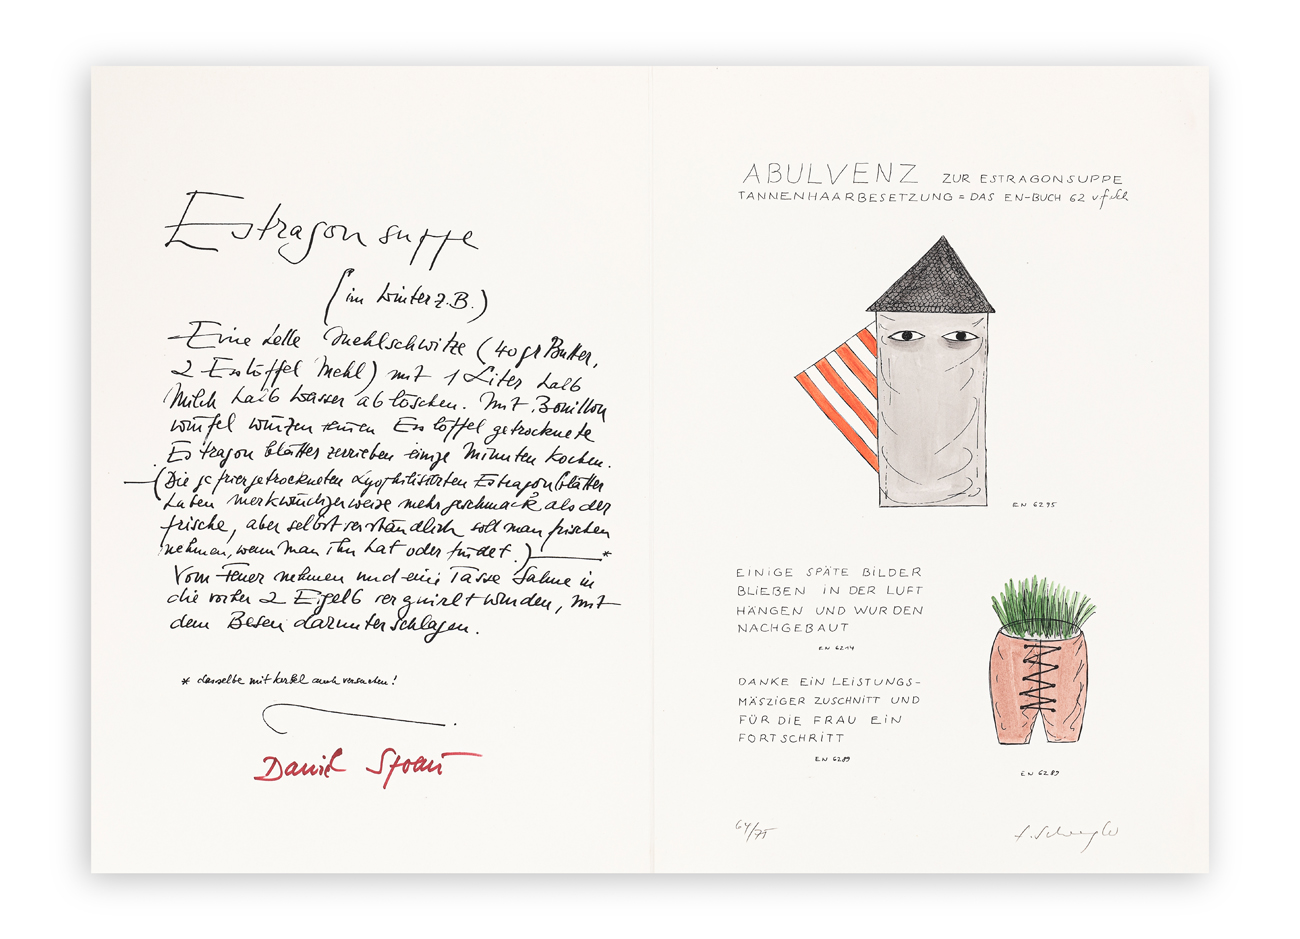 Estragonsuppe
(im Winter z.B.)
Eine helle Mehlschwitze (40 gr Butter,
2 Esslöffel Mehl) mit 1 Liter halb
Milch halb Wasser ablöschen. Mit Bouillon
würfel würzen einen Esslöffel getrocknete
Estragon blätter zerrieben einige Minuten kochen.
(Die gefriergetrockneten Lyophilisierten Estragonblätter
haben merkwürdigerweise mehr geschmack als der
frische, aber selbstverständlich soll man frischen
nehmen, wenn man ihn hat oder findet.) *
Vom Feuer nehmen und eine Tasse Sahne in
die vorher 2 Eigelb verquirlt wurden, mit
dem Besen darunterschlagen.
* dasselbe mit Kerbel auch versuchen!
Daniel Spoerri
ABULVENZ ZUR ESTRAGONSUPPE
TANNENHAARBESETZUNG = DAS EN-BUCH 62
EN 6295
EINIGE SPÄTE BILDER
BLIEBEN IN DER LUFT
HÄNGEN UND WURDEN
NACHGEBAUT
EN 6214
DANKE EIN LEISTUNGS-
MÄSZIGER ZUSCHNITT UND
FÜR DIE FRAU EIN
FORTSCHRITT
EN 6289
EN 6289
64/75